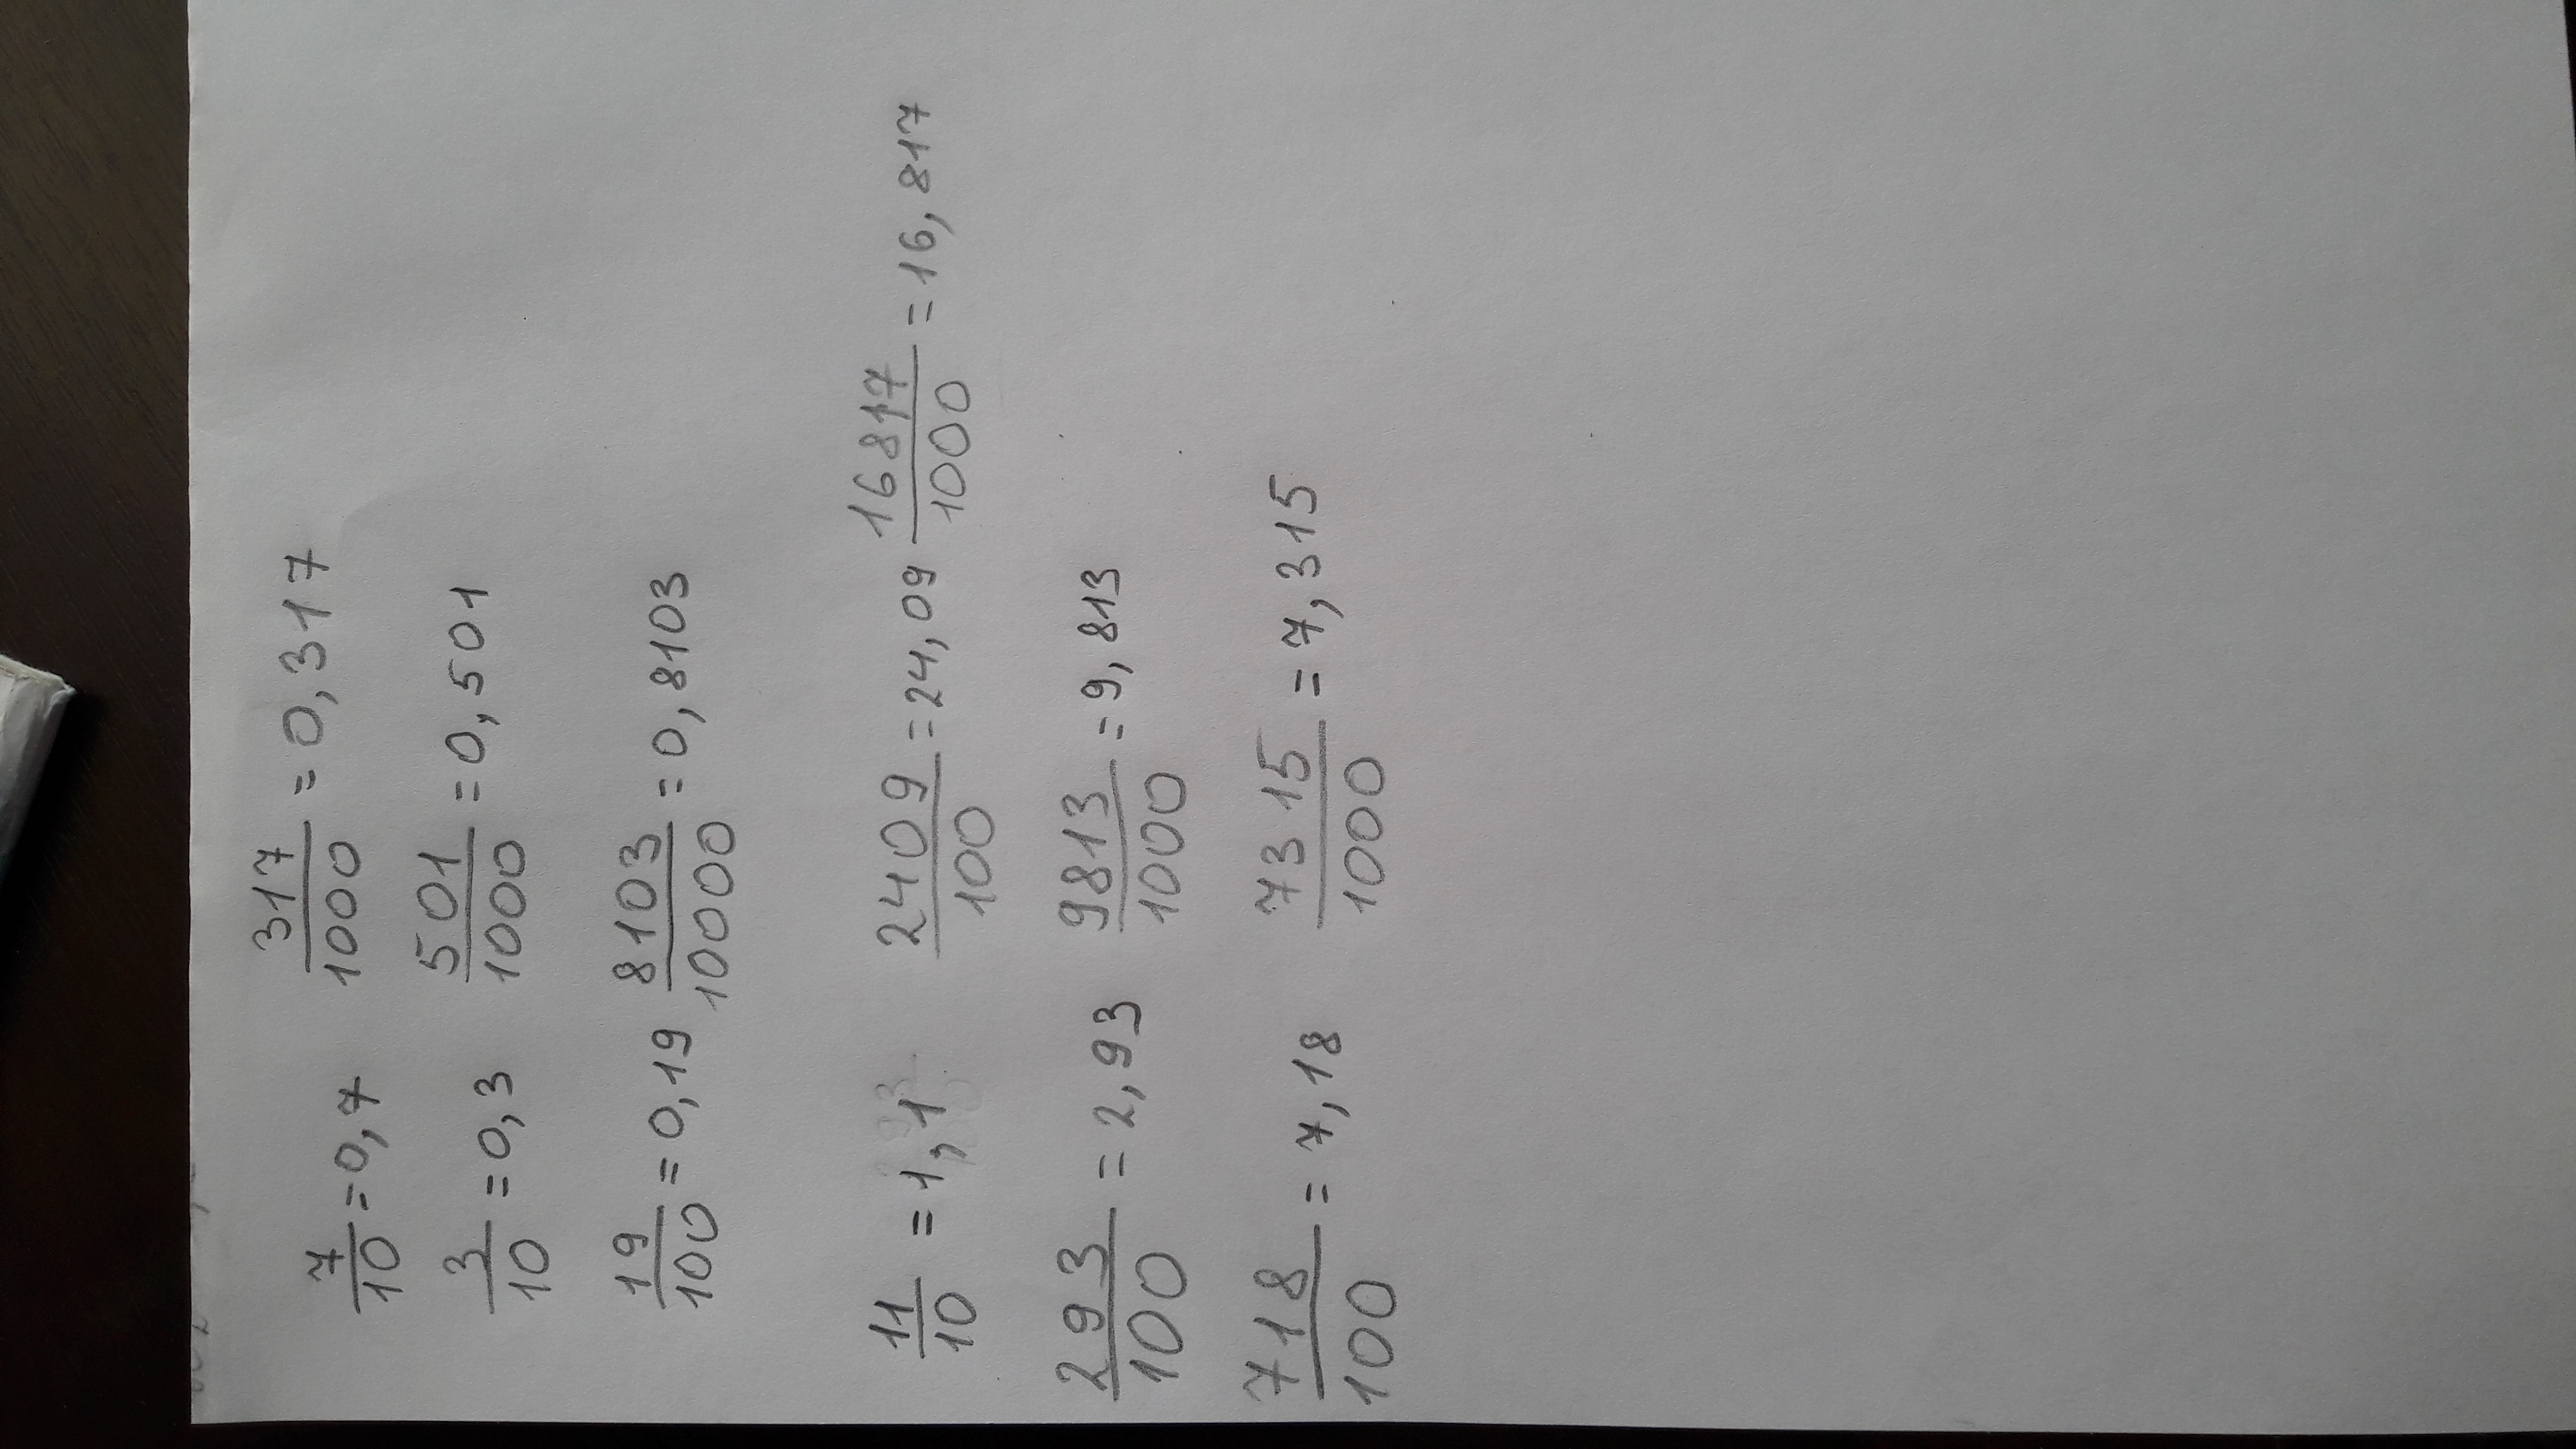 7/10 = 0,7 317/1000 = 0,317
3/10 = 0,3 501/1000 = 0,501
19/100 = 0,19 8103/10000 = 0,8103
11/10 = 1,1 2409/100 = 24,09 16817/1000 = 16,817
293/100 = 2,93 9813/1000 = 9,813
718/100 = 7,18 7315/1000 = 7,315